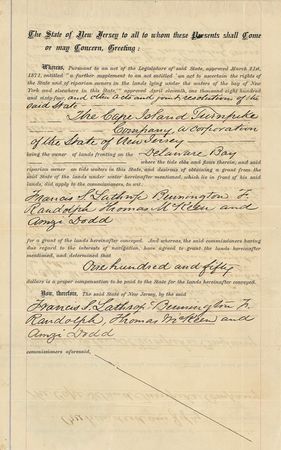 The State of New Jersey to all to whom these Presents shall Come
or may Concern, Greeting:
Whereas, Pursuant to an act of the Legislature of said State, approved March 31st,
1871, entitled "a further supplement to an act entitled 'an act to ascertain the rights of
the State and of riparian owners in the lands lying under the waters of the bay of New
York and elsewhere in this State,'" approved April eleventh, one thousand eight hundred
and sixty-four, and other Acts and joint resolutions of the
said State
The Cape Island Turnpike
Company, a corporation
of the State of New Jersey
being the owner of lands fronting on the Delaware Bay
where the tide ebbs and flows therein; and said
riparian owner on tide waters in this State, and desirous of obtaining a grant from the
said State of the lands under water hereinafter mentioned, which lie in front of his said
lands, did apply to the commissioners, to wit:
Francis S. Lathrop Bennington F.
Randolph Thomas McKeen and
Amzi Dodd
for a grant of the lands hereinafter conveyed. And whereas, the said commissioners having
due regard to the interests of navigation, have agreed to grant the lands hereinafter
mentioned, and determined that
One hundred and fifty
dollars is a proper compensation to be paid to the State for the lands hereinafter conveyed.
Now, therefore, The said State of New Jersey, by the said
Francis S. Lathrop Bennington F.
Randolph, Thomas McKeen and
Amzi Dodd
commissioners aforesaid,